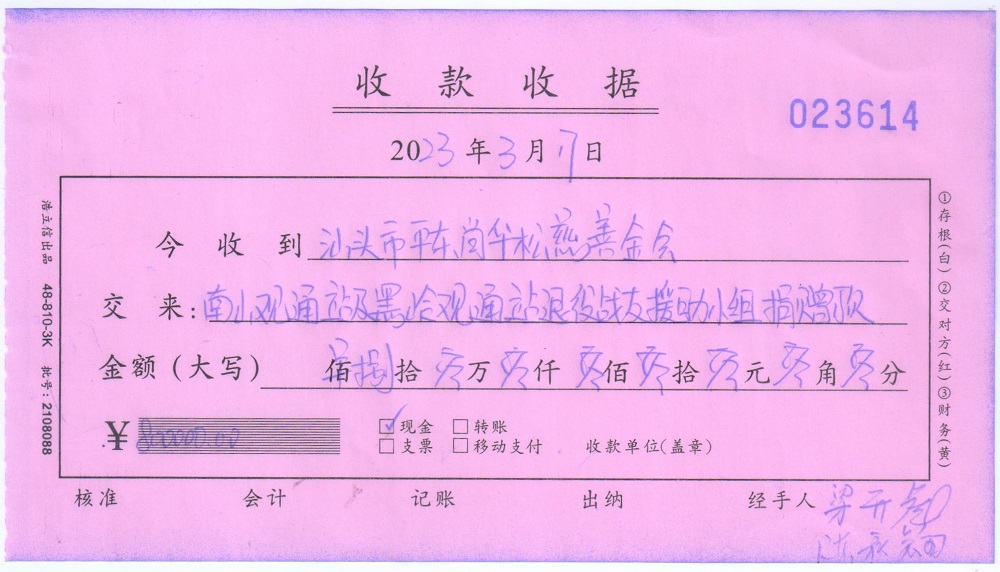 收款收据
023614
2023年3月17日
今收到 汕头市平东尚华松慈善金会
交来：南山观通站及黑哈观通站退役战友援助小组捐赠款
金额（大写） 佰捌拾零万零仟零佰零拾零元零角零分
¥800000.00
☑现金 □转账
□支票 □移动支付 收款单位（盖章）
核准 会计 记账 出纳 经手人 梁开
浩立信出品 48-810-3K 批号：2108088
①存根(白)②交对方(红)③财务(黄)